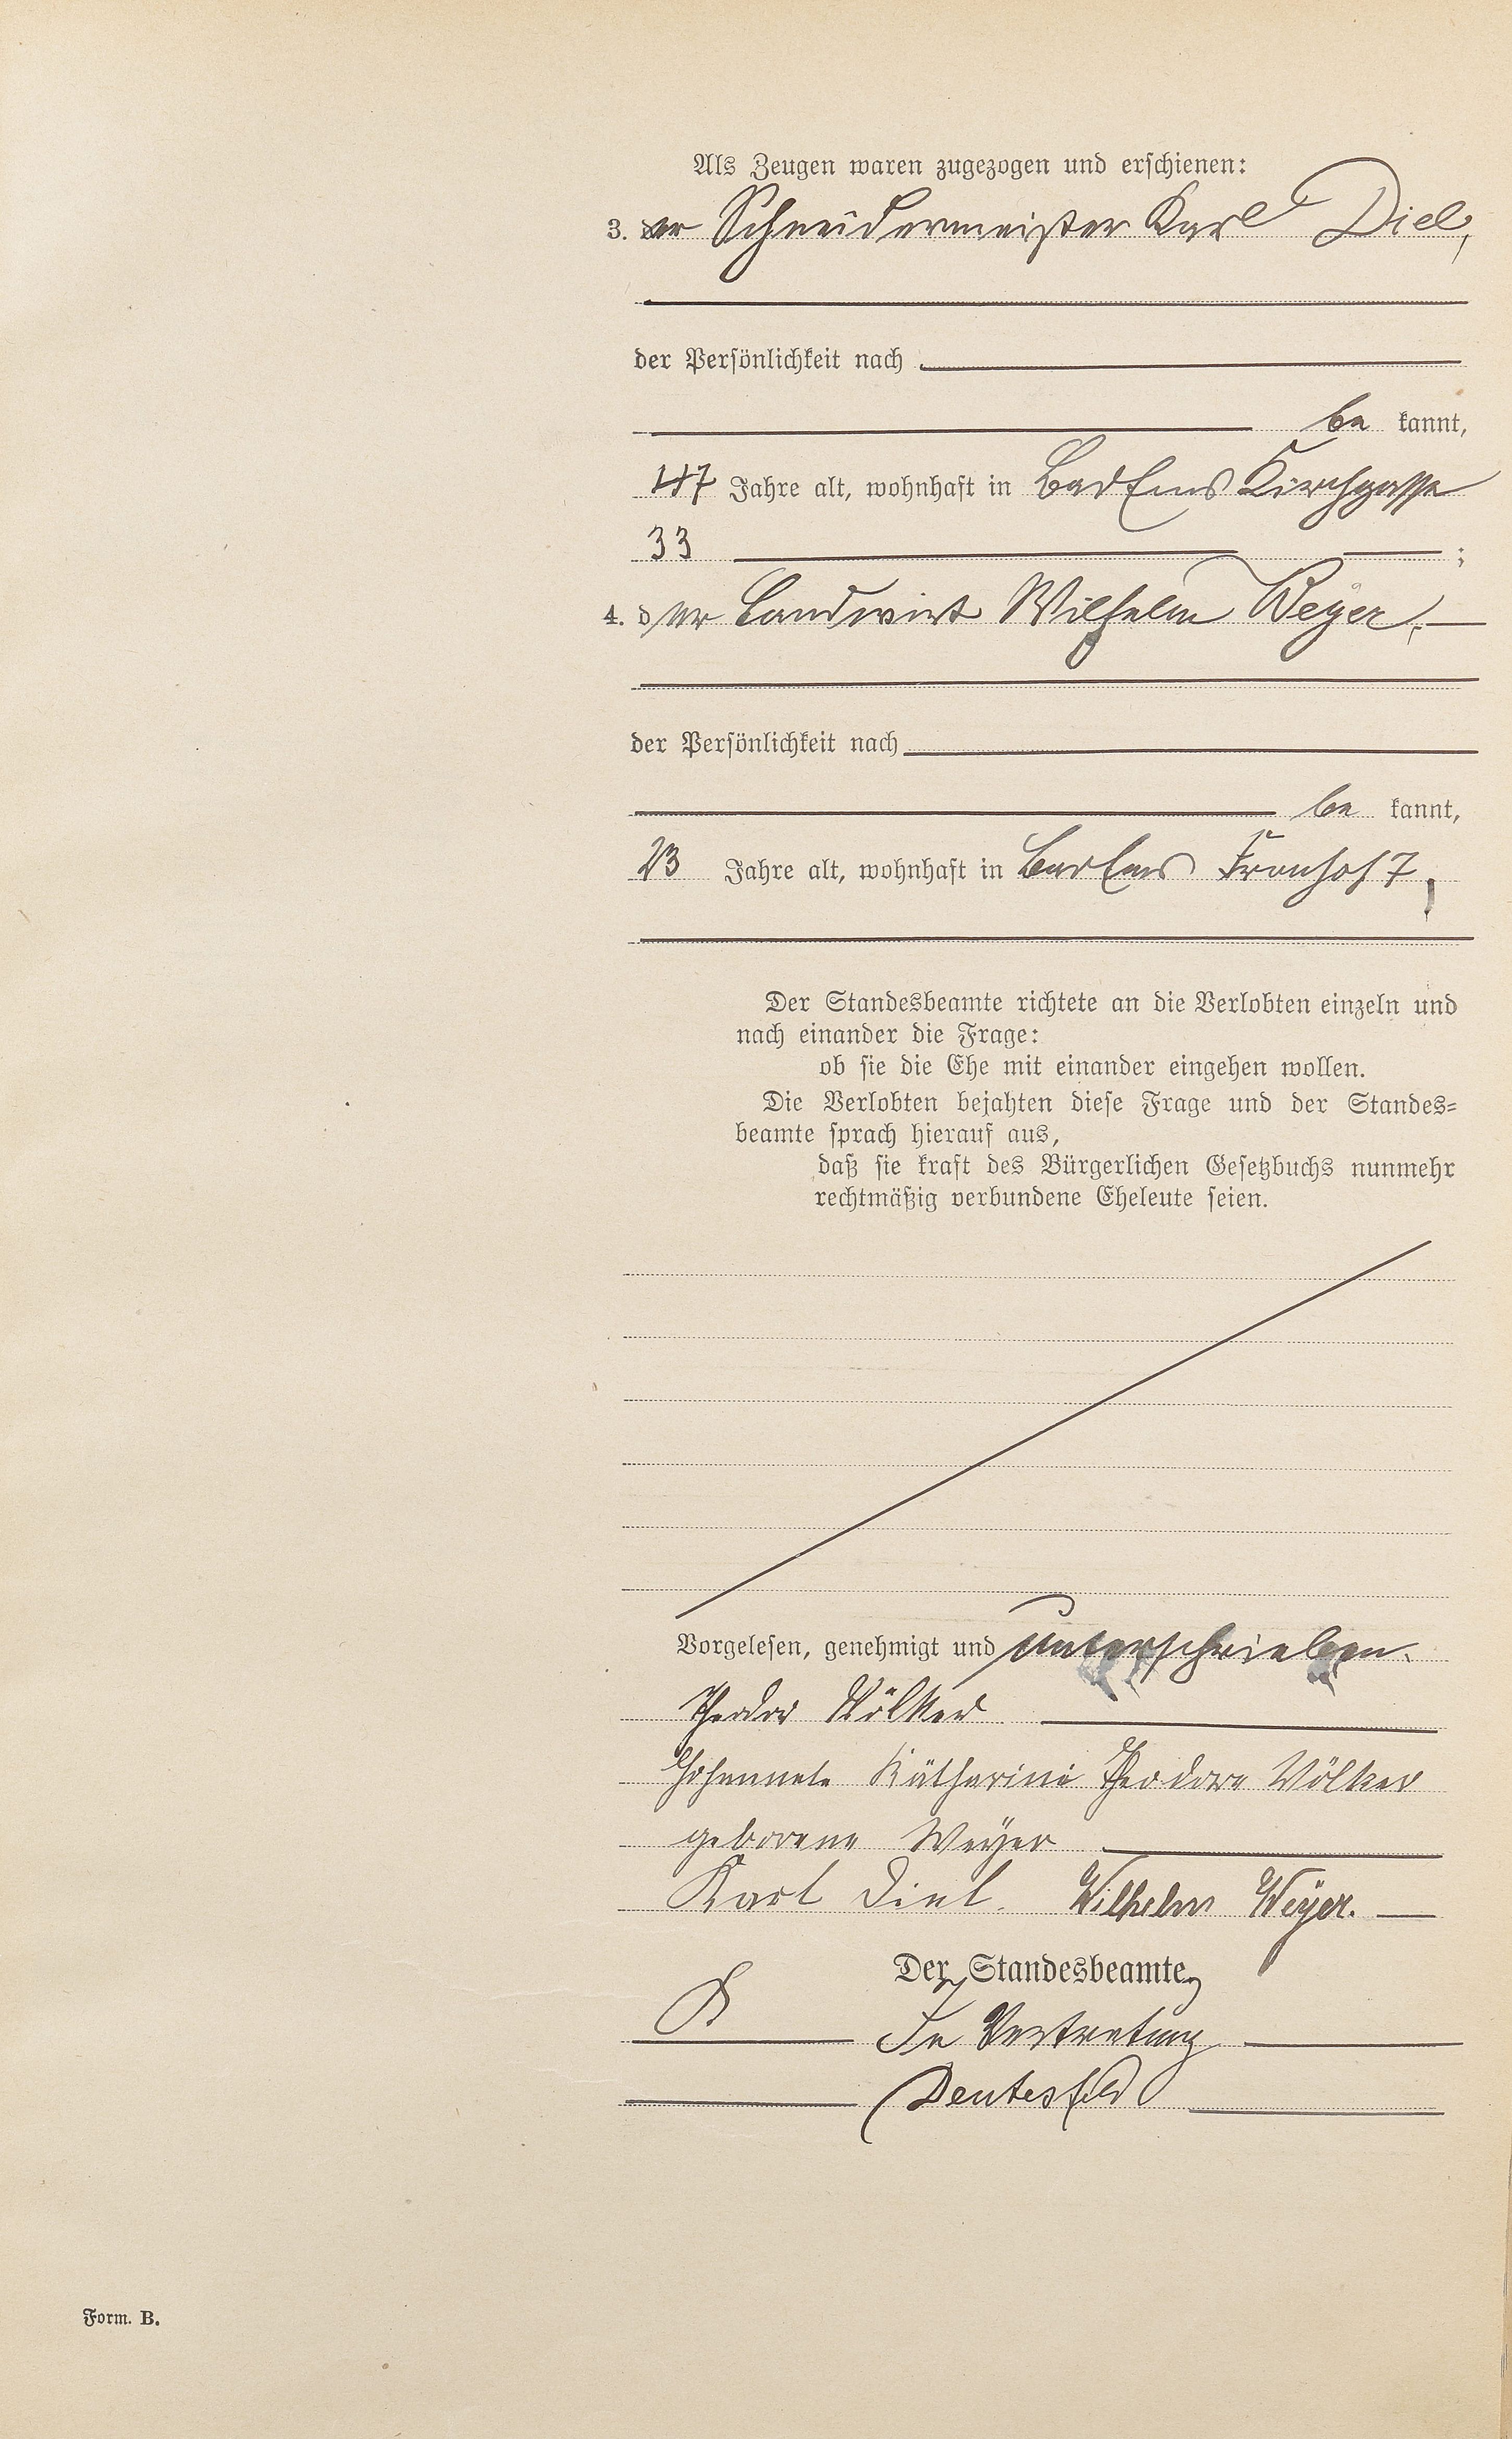 Als Zeugen waren zugezogen und erschienen:
3. der Schneidermeister Karl Diel,
der Persönlichkeit nach
be kannt,
47 Jahre alt, wohnhaft in Bad Ems Kirchgasse
33 ;
4. der Landwirt Wilhelm Weyer,
der Persönlichkeit nach
be kannt,
23 Jahre alt, wohnhaft in Bad Ems Fronhof 7,
Der Standesbeamte richtete an die Verlobten einzeln und
nach einander die Frage:
ob sie die Ehe mit einander eingehen wollen.
Die Verlobten bejahten diese Frage und der Standes=
beamte sprach hierauf aus,
daß sie kraft des Bürgerlichen Gesetzbuchs nunmehr
rechtmäßig verbundene Eheleute seien.
Vorgelesen, genehmigt und unterschrieben.
Theodor Völker
Johannete Katharine Theodore Völker
geborene Weyer
Karl Diel. Wilhelm Weyer.
Der Standesbeamte,
In Vertretung
Form. B.